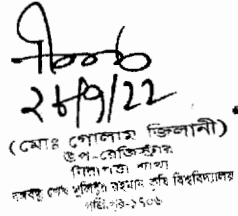 ২৮/9/22
(মোঃ গোলাম জিলানী)
উপ-রেজিস্ট্রার
নিরাপত্তা শাখা
বঙ্গবন্ধু শেখ মুজিবুর রহমান কৃষি বিশ্ববিদ্যালয়
গাজীপুর-১৭০৬